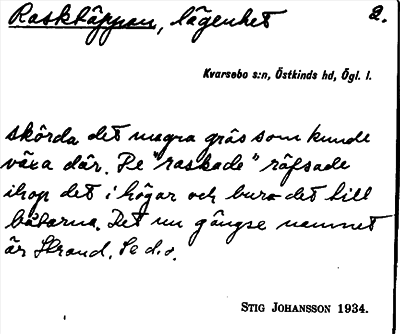 Rasktäppan, lägenhet 2.
Kvarsebo s:n, Östkinds hd, Ögl. l.
skörda det magra gräs som kunde
växa där. De "raskade" räfsade
ihop det i högar och buro det till
båtarna. Det nu gängse namnet
är Strand. Se d.o.
STIG JOHANSSON 1934.